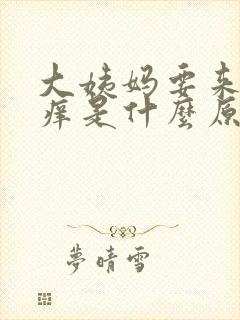 大姨妈要来
痒是什麼原
夢晴雪